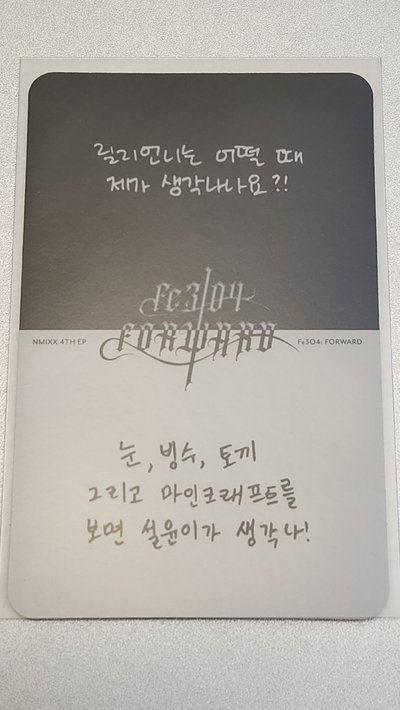 릴리언니는 어떨 때
제가 생각나나요?!
Fe3O4
FORWARD
NMIXX 4TH EP
Fe3O4: FORWARD
눈, 빙수, 토끼
그리고 마인크래프트를
보면 설윤이가 생각나!